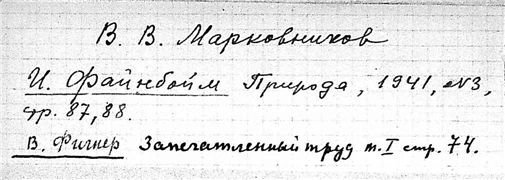 В. В. Марковников
И. Файнбойм Природа, 1941, №3,
стр. 87, 88.
В. Фигнер Запечатленный труд т. I стр. 74.